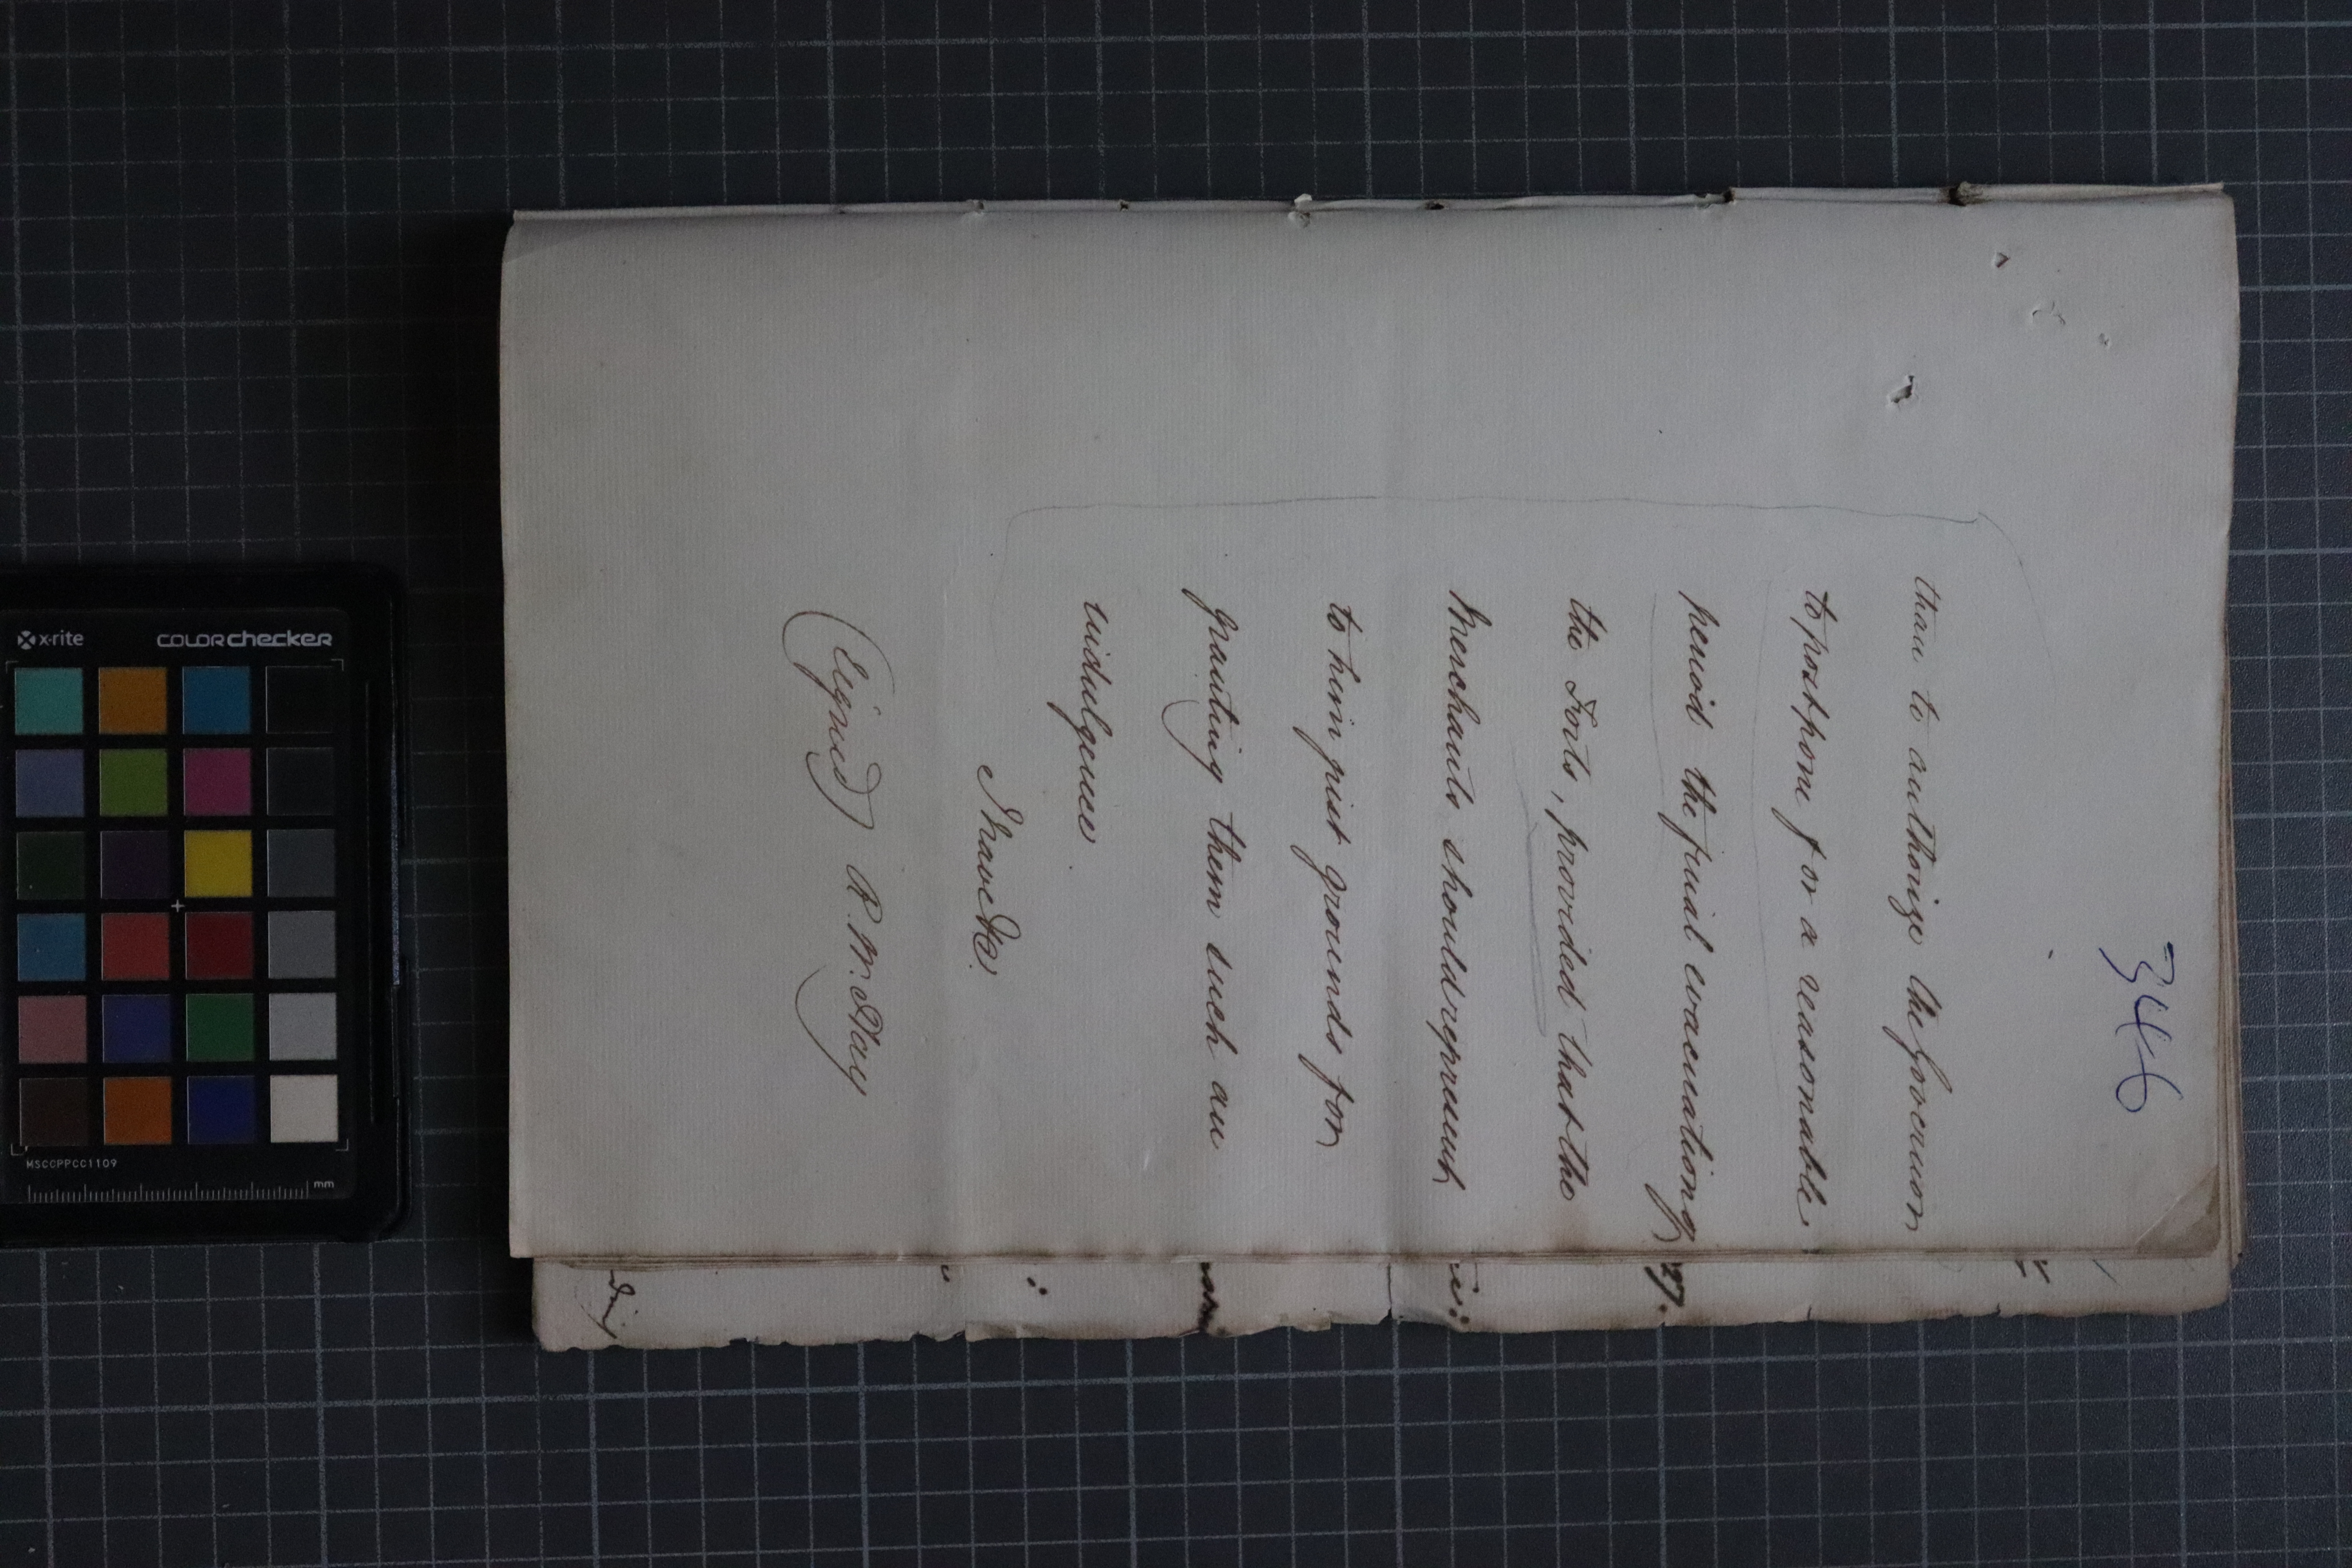 346
than to authorize the Governor
to postpone for a reasonable
period the final evacuation of
the Forts, provided that the
Merchants should represent
to him just grounds for
granting them such an
indulgence
I have &c.
(Signed) R. W. Hay
x-rite
colorchecker
MSCCPPCC1109
mm